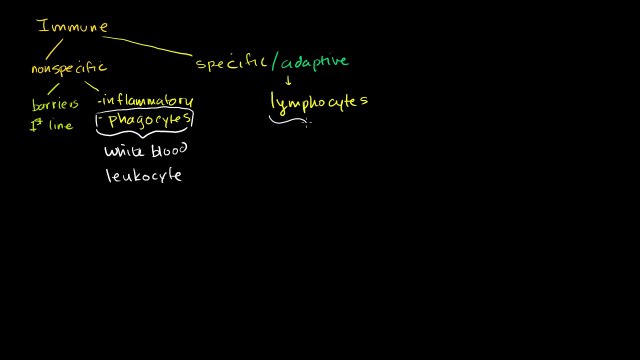 Immune
nonspecific
specific/adaptive
barriers
1st line
-inflammatory
- phagocytes
lymphocytes
white blood
leukocyte